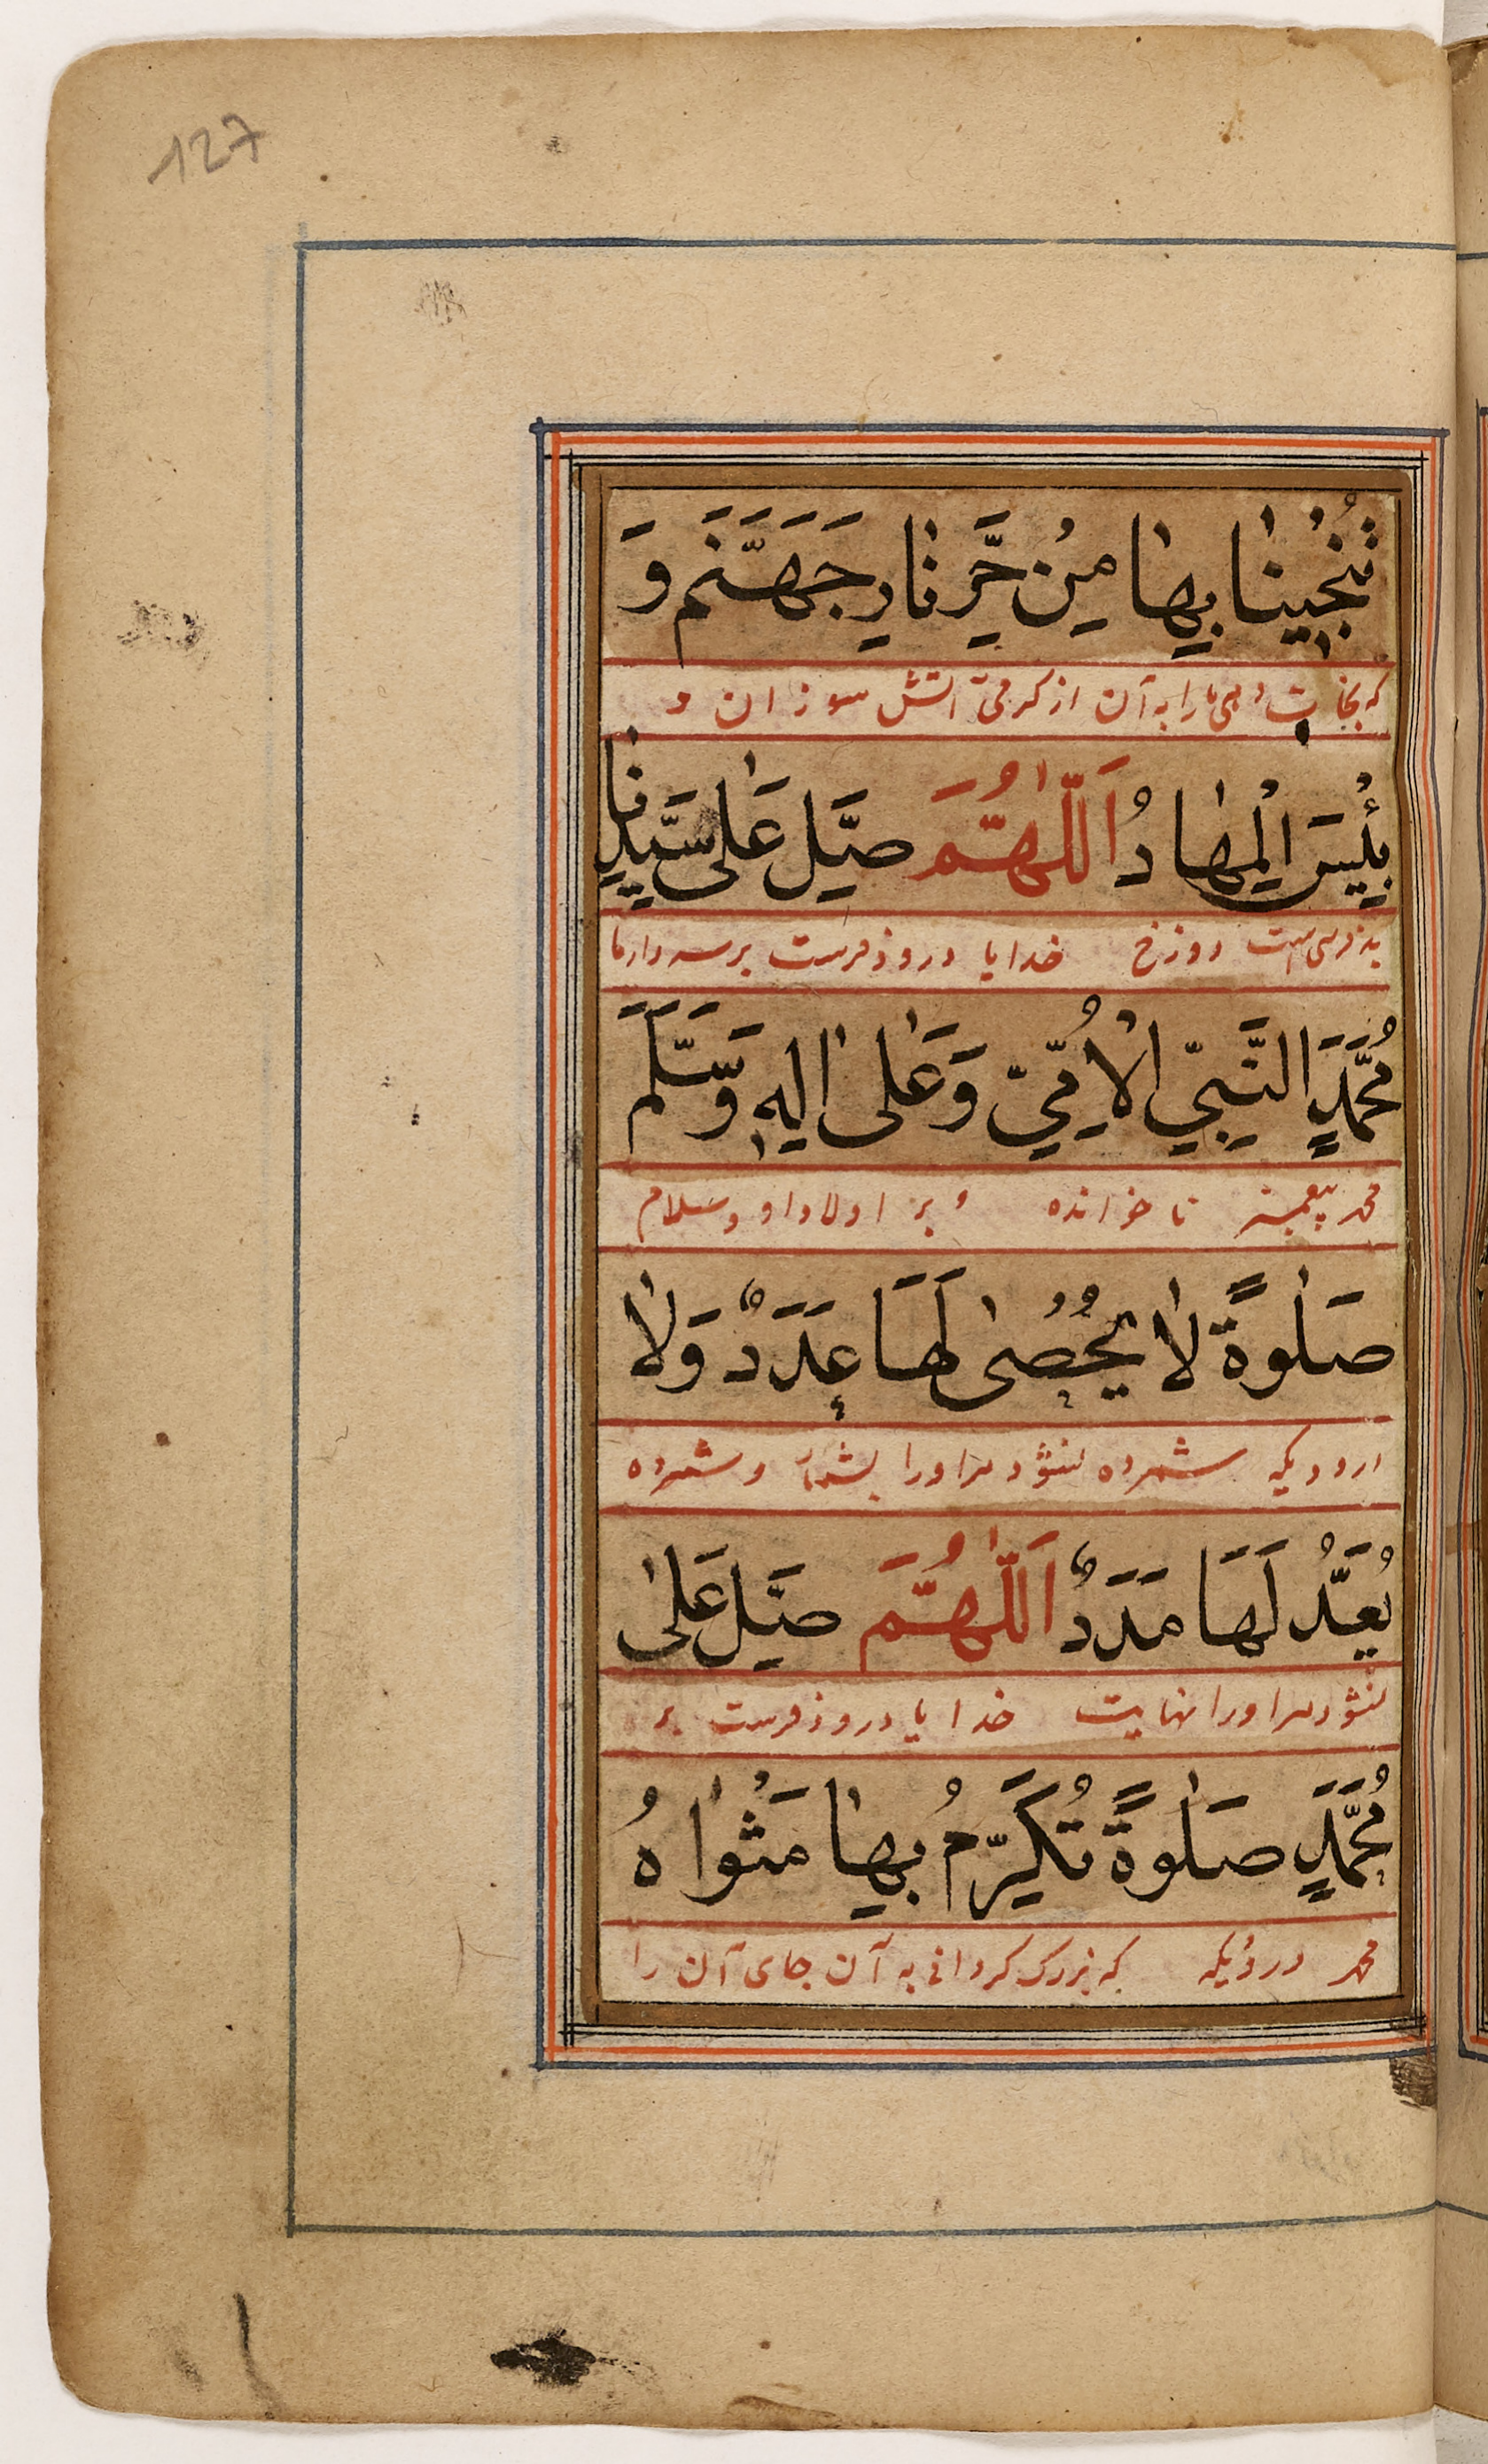 127
تُنْجِينَا بِهَا مِنْ حَرِّ نَارِ جَهَنَّمَ وَ
که نجات دهی ما را به آن از کرمی آتش سوزان و
بِئْسَ الْمِهَادُ اَللّٰهُمَّ صَلِّ عَلٰى سَيِّدِنَا
است دوزخ خدایا درود فرست بر سردار ما
مُحَمَّدٍ النَّبِيِّ الْاُمِّيِّ وَعَلٰى اٰلِهٖ وَسَلَّمَ
محمد پیغمبر نا خوانده و بر اولاد او و سلام
صَلٰوةً لَا يُحْصٰى لَهَا عَدَدٌ وَلَا
درودیکه شمرده نشود مر اورا بشمار و شمرده
يُعَدُّ لَهَا مَدَدٌ اَللّٰهُمَّ صَلِّ عَلٰى
نشود مر اورا نهایت خدایا درود فرست بر
مُحَمَّدٍ صَلٰوةً تُكَرِّمُ بِهَا مَثْوَاهُ
محمد درودیکه که بزرک کردانی به آن جای آن را